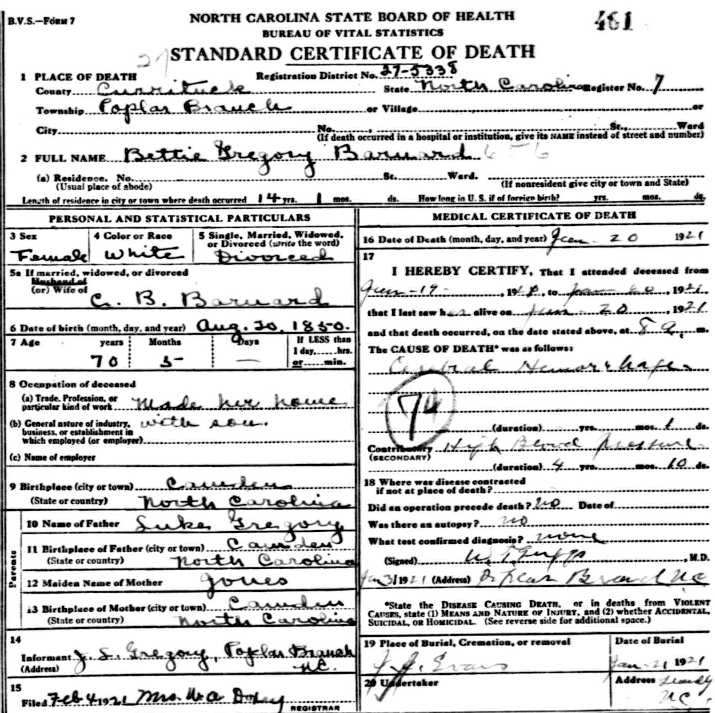 B.V.S.-FORM 7
NORTH CAROLINA STATE BOARD OF HEALTH
BUREAU OF VITAL STATISTICS
461
27 STANDARD CERTIFICATE OF DEATH
1 PLACE OF DEATH Registration District No. 27-5338
County Currituck State North Carolina Register No. 7
Township Poplar Branch or Village or
City No. St., Ward
(If death occurred in a hospital or institution, give its NAME instead of street and number)
2 FULL NAME Bettie Gregory Barnard 656
(a) Residence. No. St. Ward.
(Usual place of abode) (If nonresident give city or town and State)
Length of residence in city or town where death occurred 14 yrs. 1 mos. ds. How long in U. S. if of foreign birth? yrs. mos. ds.
PERSONAL AND STATISTICAL PARTICULARS
3 Sex 4 Color or Race 5 Single, Married, Widowed, or Divorced (write the word)
Female White Divorced
5a If married, widowed, or divorced
Husband of
(or) Wife of C. B. Barnard
6 Date of birth (month, day, and year) Aug. 20, 1850.
7 Age years Months Days If LESS than
1 day, hrs.
or min.
70 5 —
8 Occupation of deceased
(a) Trade, Profession, or
particular kind of work Made her home
(b) General nature of industry,
business, or establishment in
which employed (or employer) with son.
(c) Name of employer
9 Birthplace (city or town) Camden
(State or country) North Carolina
Parents
10 Name of Father Luke Gregory
11 Birthplace of Father (city or town) Camden
(State or country) North Carolina
12 Maiden Name of Mother Jones
13 Birthplace of Mother (city or town) Camden
(State or country) North Carolina
14
Informant J. S. Gregory, Poplar Branch
(Address) N.C.
15
Filed Feb 4 1921 Mrs. W. A. Doxey
REGISTRAR
MEDICAL CERTIFICATE OF DEATH
16 Date of Death (month, day, and year) Jan. 20 1921
17
I HEREBY CERTIFY, That I attended deceased from
Jan-19-, to Jan 20, 1921
that I last saw her alive on Jan 20, 1921
and that death occurred, on the date stated above, at 8 a. m.
The CAUSE OF DEATH* was as follows:
Cerebral Hemorrhage
74
(duration) yrs. mos. 1 ds.
Contributory High Blood pressure
(SECONDARY)
(duration) 4 yrs. mos. 10 ds.
18 Where was disease contracted
if not at place of death?
Did an operation precede death? No Date of
Was there an autopsy? No
What test confirmed diagnosis? none
(Signed) W. T. Griggs, M.D.
1921 (Address) Poplar Branch NC
*State the DISEASE CAUSING DEATH, or in deaths from VIOLENT
CAUSES, state (1) MEANS AND NATURE OF INJURY, and (2) whether ACCIDENTAL,
SUICIDAL, OR HOMICIDAL. (See reverse side for additional space.)
19 Place of Burial, Cremation, or removal Date of Burial
Jan-21 1921
20 Undertaker Address
J. J. Evans
N.C.